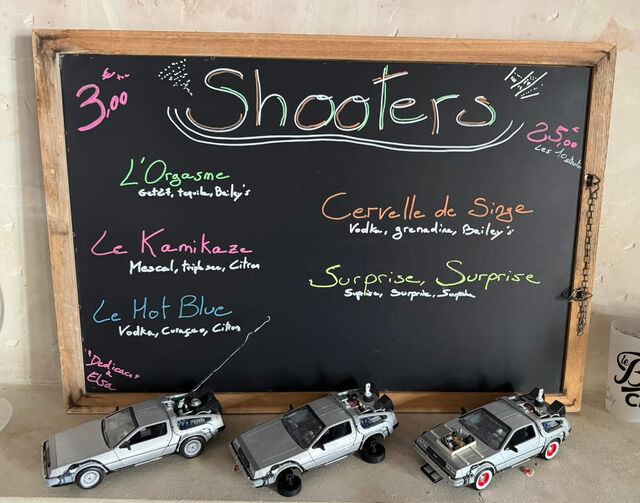 Shooters
3,00
25,00€
L'Orgasme
Get27, tequila, Bailey's
Le Kamikaze
Mescal, triple sec, Citron
Le Hot Blue
Vodka, Curaçao, Citron
Cervelle de Singe
Vodka, grenadine, Bailey's
Surprise, Surprise
Surprise, Surprise, Surprise
"Dédicace"
à
Elsa
le